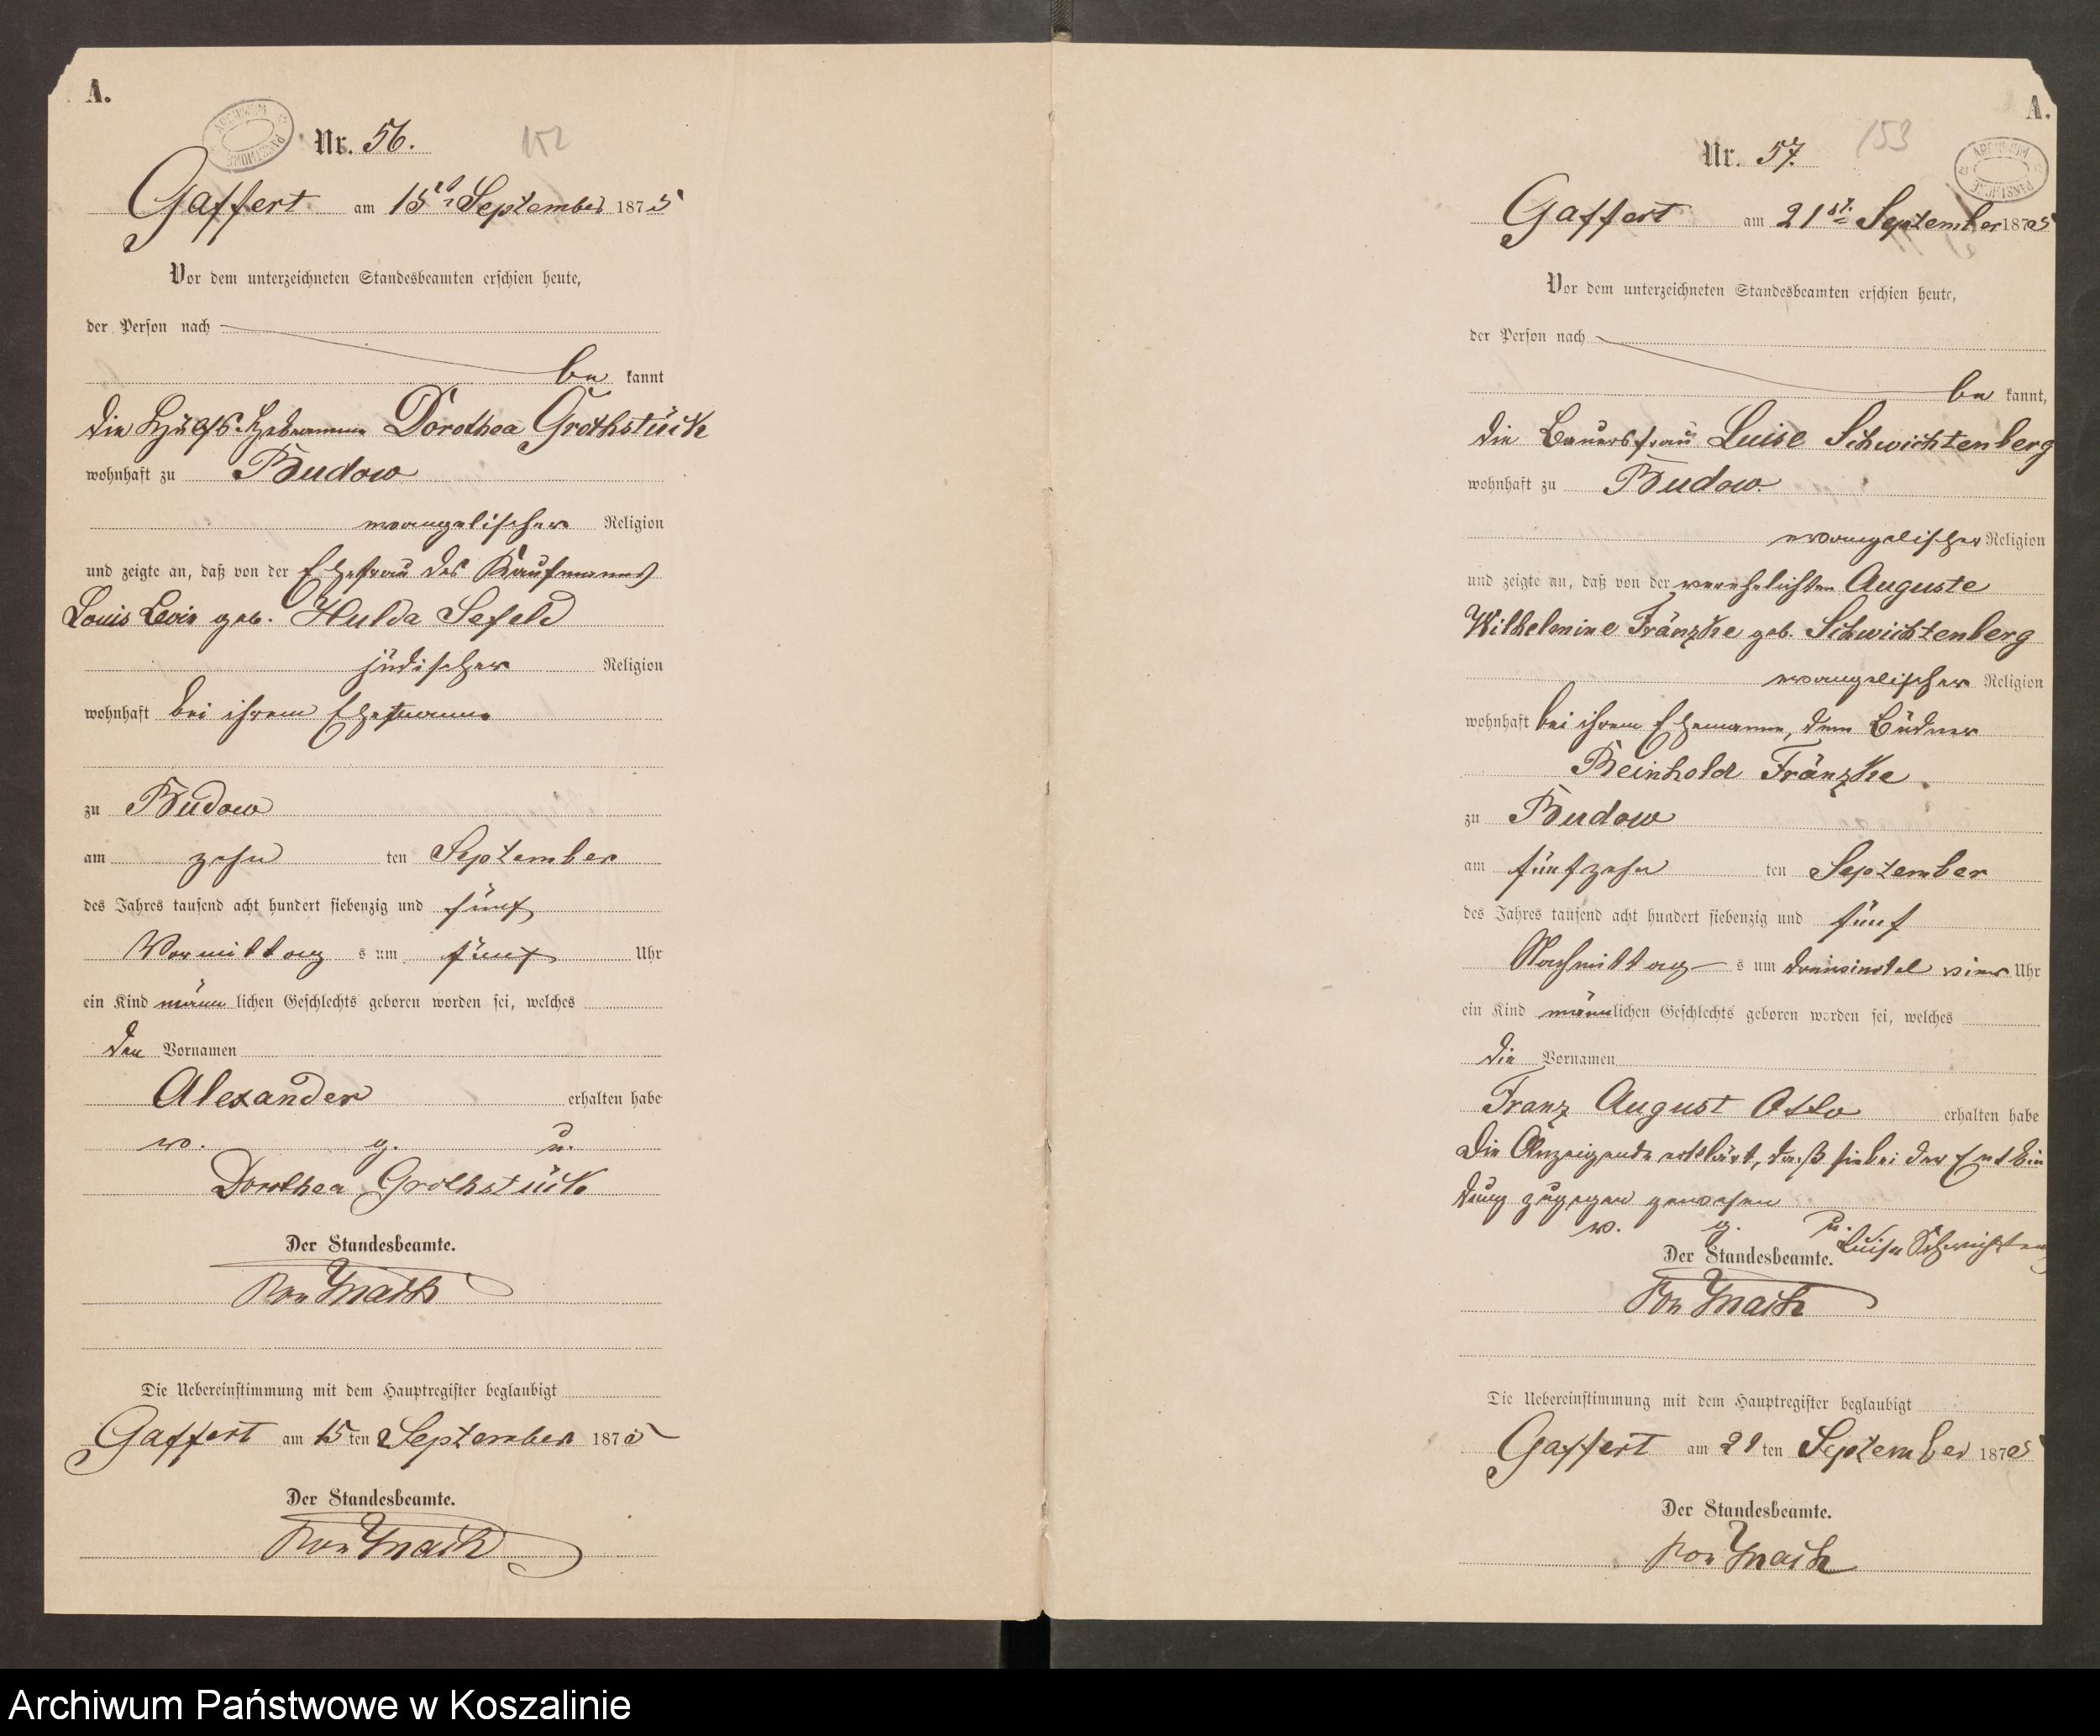 A.
Nr. 56.
152
Gaffert am 15t September 1875
Vor dem unterzeichneten Standesbeamten erschien heute,
der Person nach
be kannt
die Hülfs-Hebamme Dorothea Grothstück
wohnhaft zu Budow
evangelischer Religion
und zeigte an, daß von der Ehefrau des Kaufmanns
Louis Levin geb. Hulda Sefeld
jüdischer Religion
wohnhaft bei ihrem Ehemanne
zu Budow
am zehn ten September
des Jahres tausend acht hundert siebenzig und fünf
Vormittag s um fünf Uhr
ein Kind männ lichen Geschlechts geboren worden sei, welches
den Vornamen
Alexander erhalten habe
v. g. u.
Dorothea Grothstück
Der Standesbeamte.
von
Die Uebereinstimmung mit dem Hauptregister beglaubigt
Gaffert am 15 ten September 1875
Der Standesbeamte.
von
A.
Nr. 57.
153
ARCHIWUM PAŃSTWOWE
Gaffert am 21st September 1875
Vor dem unterzeichneten Standesbeamten erschien heute,
der Person nach
be kannt,
die Bauersfrau Luise Schwichtenberg
wohnhaft zu Budow.
evangelischer Religion
und zeigte an, daß von der verehelichten Auguste
Wilhelmine Fränzke geb. Schwichtenberg
evangelischer Religion
wohnhaft bei ihrem Ehemanne, dem Büdner
Reinhold Fränzke
zu Budow
am fünfzehn ten September
des Jahres tausend acht hundert siebenzig und fünf
Nachmittag s um dreiviertel vier Uhr
ein Kind männlichen Geschlechts geboren worden sei, welches
die Vornamen
Franz August Otto erhalten habe
Die Anzeigende erklärt, daß sie bei der Entbin
dung zugegen gewesen
v. g. u.
Luise Schwichtenberg
Der Standesbeamte.
von
Die Uebereinstimmung mit dem Hauptregister beglaubigt
Gaffert am 21 ten September 1875
Der Standesbeamte.
von
Archiwum Państwowe w Koszalinie